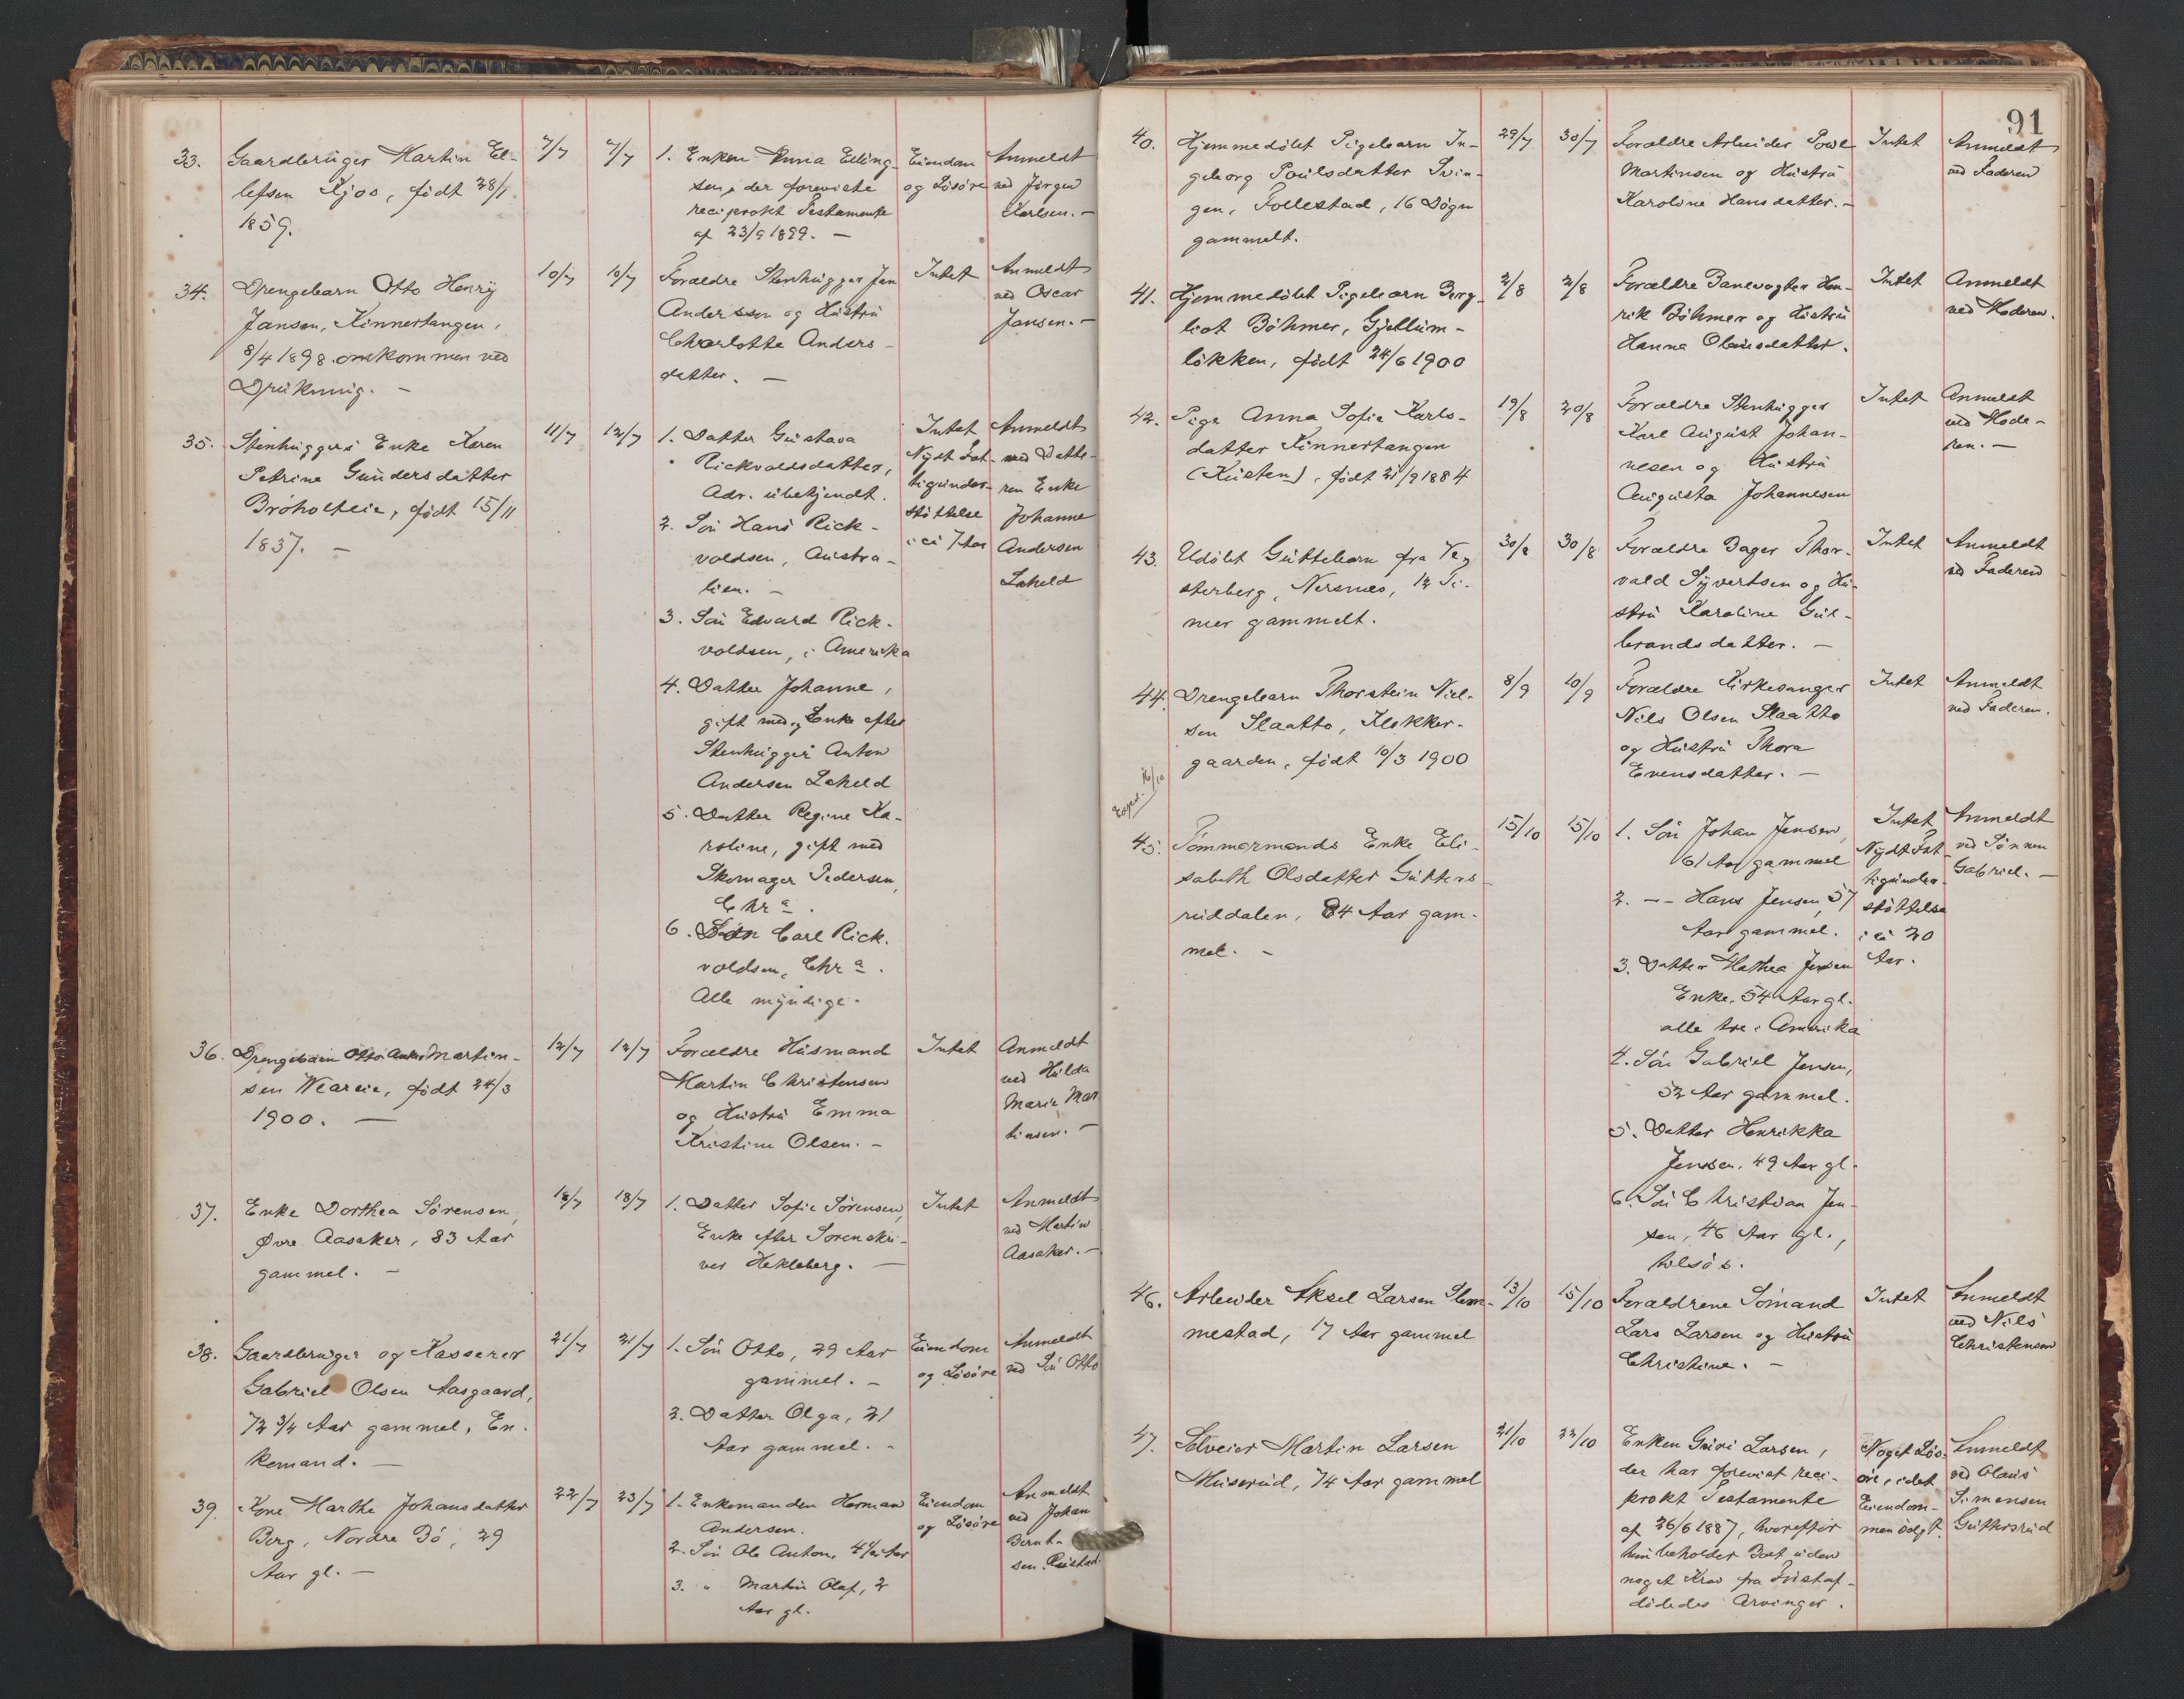 91
33. Gaardbruger Martin El-
lefsen Kjos, född 28/1
1859.
7/7
9/7
1. Enken Anna Elling-
sen, der foreviste
reciprokt Testamente
af 23/9 1899. —
Eiendom
og Lösöre
Anmeldt
ved Jörgen
Karlsen. —
34. Drengebarn Otto Henry
Jansen, Kinnertangen,
8/4 1898. omkommen ved
Drukning. —
10/7
10/7
Forældre Stenhugger Jan
Anderssen og Hustru
Charlotte Anders-
datter. —
Intet
Anmeldt
ved Oscar
Jansen. —
35. Stenhuggers Enke Karen
Petrine Gundersdatter
Bröholteie, född 15/11
1837. —
11/7
12/7
1. Datter Gustava
Rickvoldsdatter,
Adr. ubekjendt.
2. Sön Hans Rick-
voldsen, Austra-
lien. —
3. Sön Edvard Rick-
voldsen, i Amerika
4. Datter Johanne,
gift med og Enke efter
Stenhugger Anton
Andersen Laheld
5. Datter Regine Ka-
roline, gift med
Skomager Pedersen,
Chra.
6. Sön Carl Rick-
voldsen, Chra.
Alle myndige.
Intet
Nydt Fat-
tigunder-
støttelse
i ca 7 Aar
Anmeldt
ved Datte-
ren Enke
Johanne
Andersen
Laheld
36. Drengebarn Otto Anker Martin-
sen Weareie, född 24/3
1900. —
12/7
12/7
Forældre Husmand
Martin Christensen
og Hustru Emma
Kristine Olsen. —
Intet
Anmeldt
ved Hulda
Marie Mar
tinsen. —
37. Enke Dorthea Sörensen,
Øvre Aasaker, 83 Aar
gammel. —
18/7
18/7
1. Datter Sofie Sörensen,
Enke efter Sorenskri-
ver Hekleberg. —
Intet
Anmeldt
ved Martin
Aasaker. —
38. Gaardbruger og Kasserer
Gabriel Olsen Aasgaard,
72 3/4 Aar gammel, En-
kemand. —
21/7
21/7
1. Sön Otto, 29 Aar
gammel. —
2. Datter Olga, 21
Aar gammel. —
Eiendom
og Lösöre
Anmeldt
ved Sön Otto
39. Kone Marthe Johansdatter
Berg, Nordre Bö, 29
Aar gl. —
22/7
23/7
1. Enkemanden Herman
Andersen.
2. Sön Ole Anton, 4 1/2 Aar
3. " Martin Olaf, 2
Aar gl.
Eiendom
og Lösöre
Anmeldt
ved Johan
Bernt-
sen Rustad.
40. Hjemmedöbt Pigebarn In-
geborg Poulsdatter Svin-
gen, Follestad, 16 Dögn
gammelt.
29/7
30/7
Forældre Arbeider Powl
Martinsen og Hustru
Karoline Hansdatter. —
Intet
Anmeldt
ved Faderen
41. Hjemmedöbt Pigebarn Berg-
liot Böhmer, Gjellum-
lökken, född 24/6 1900
2/8
2/8
Forældre Banevogter Hen-
rik Böhmer og Hustru
Hanna Olausdatter.
Intet
Anmeldt
ved Moderen.
42. Pige Anna Sofie Karls-
datter Kinnertangen
(Kusten), född 21/9 1884
19/8
20/8
Forældre Stenhugger
Karl August Johan-
nesen og Hustru
Augusta Johannesen
Intet
Anmeldt
ved Mode-
ren. —
43. Udöbt Guttebarn fra Ve-
sterberg, Nersnes, 12 Ti-
mer gammelt.
30/8
30/8
Forældre Bager Thor-
vald Syvertsen og Hu-
stru Karoline Gul-
brandsdatter. —
Intet
Anmeldt
ved Faderen
44. Drengebarn Thorstein Niel-
sen Slaatto, Klokker-
gaarden, född 10/3 1900
8/9
10/9
Forældre Kirkesanger
Nils Olsen Slaatto
og Hustru Thora
Evensdatter. —
Intet
Anmeldt
ved Faderen.
16/10
45. Tömmermands Enke Eli-
sabeth Olsdatter Gutters-
ruddalen, 84 Aar gam-
mel. —
15/10
15/10
1. Sön Johan Jensen,
61 Aar gammel
2. — Hans Jensen, 57
Aar gammel.
3. Datter Mathea Jensen
Enke, 54 Aar gl.
alle tre i Amerika
4. Sön Gabriel Jensen,
52 Aar gammel.
5. Datter Henrikka
Jensen, 49 Aar gl.
6. Sön Christian Jen-
sen, 46 Aar gl.,
tilsös.
Intet
Nydt Fat-
tigunder-
støttelse
i ca 20
Aar.
Anmeldt
ved Sönnen
Gabriel. —
46. Arbeider Aksel Larsen Slem-
mestad, 17 Aar gammel
13/10
15/10
Forældrene Sömand
Lars Larsen og Hustru
Christine. —
Intet
Anmeldt
ved Nils
Christensen
47. Selveier Martin Larsen
Muserud, 74 Aar gammel
21/10
22/10
Enken Guri Larsen,
der har forevist reci-
prokt Testamente
af 26/6 1887, hvorefter
hun beholder Boet uden
noget Krav fra Förstaf-
dödedes Arvinger.
Noget Lös-
öre, idet
Eiendom-
men solgt.
Anmeldt
ved Olaus
Simensen
Guttersrud